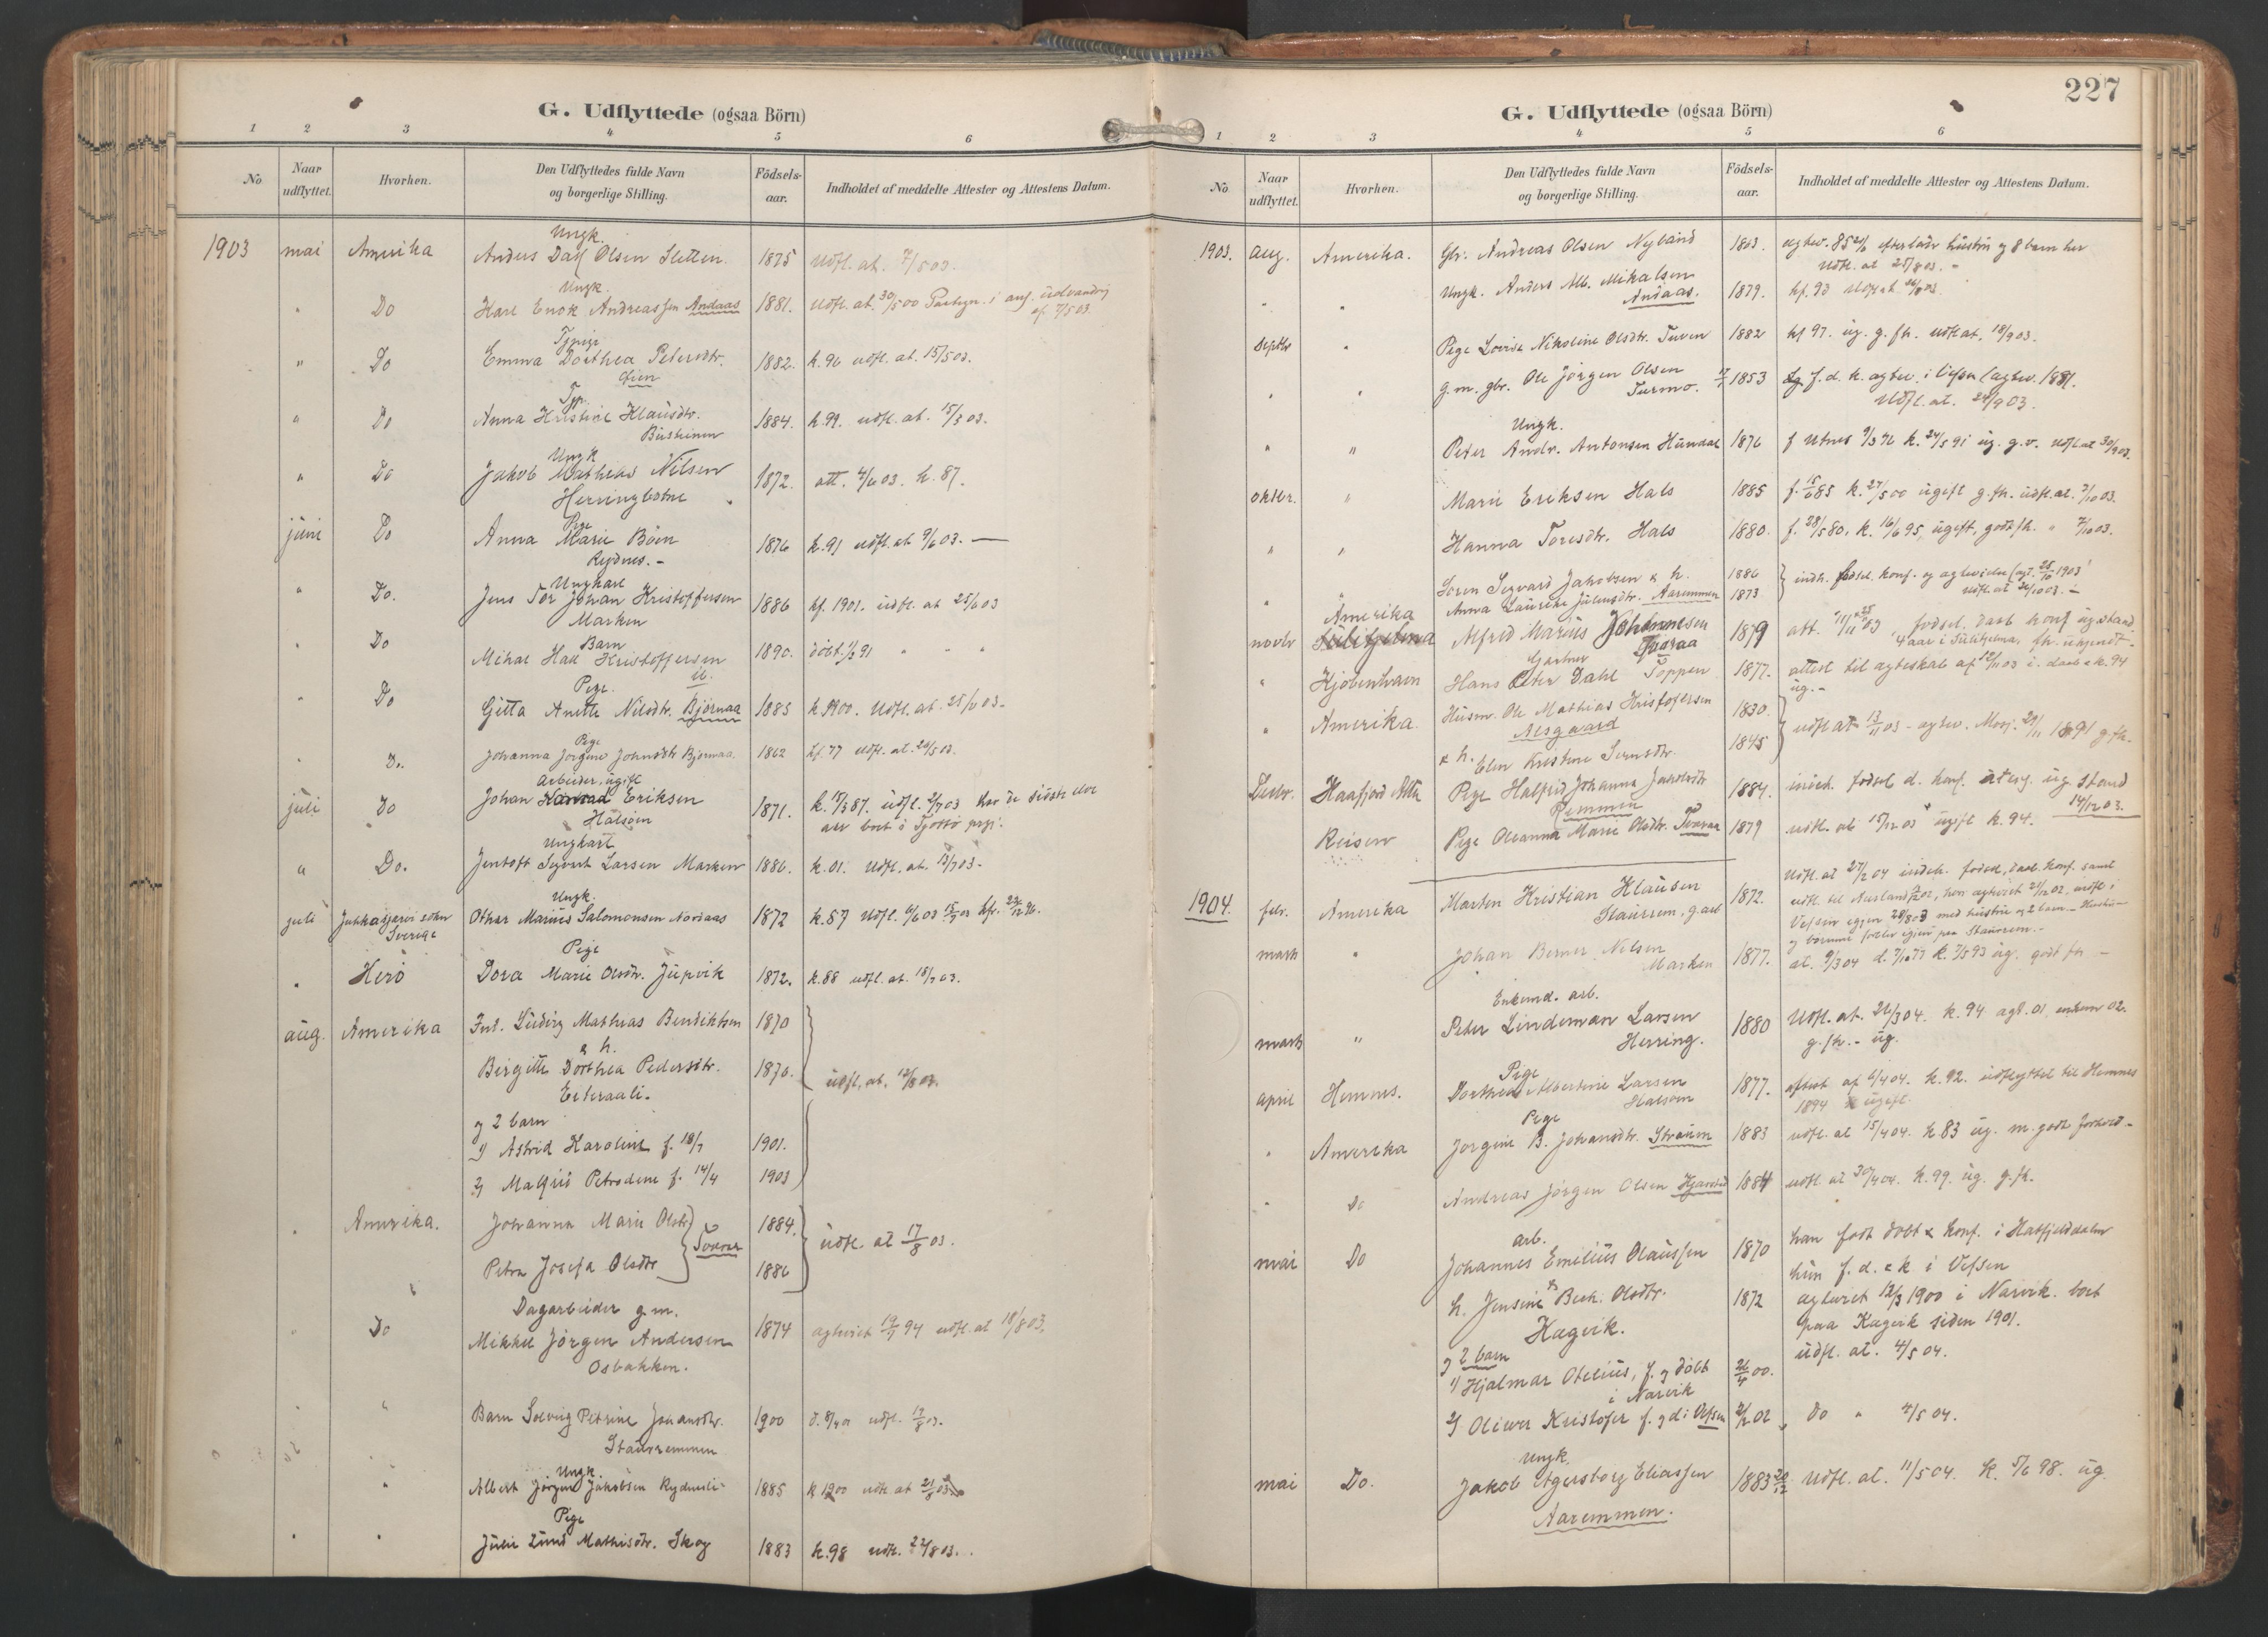 G. Udflyttede (ogsaa Börn)
1 2 3 4 5 6
No
Naar udflyttet.
Hvorhen.
Den Udflyttedes fulde Navn og borgerlige Stilling.
Födsels-aar.
Indholdet af meddelte Attester og Attestens Datum.
Ungk.
1903 mai Amerika Anders Dass Olsen Sletten. 1875 Udfl. at. 7/5 03.
Ungk.
" Do Karl Enok Andreassen Andaas 1881. Udfl. at. 30/5 00
af 7/5 03.
Tjpige
" Do Emma Dorthea Petersdtr. 1882. k. 96 udfl. at. 15/5 03.
" Do Anna Kristine Klausdtr. 1884. k. 99. udfl. at. 15/5 03.
Ungk
" Do Jakob Mathias Nilsen 1872. att. 4/6 03. k. 87.
Herringbotne
Pige
juni Do Anna Marie Böen 1876 k. 91 udfl. at 9/6 03. —
Rydnes. -
Ungkarl
" Do. Jens Tor Johan Kristoffersen 1886 kf. 1901. udfl. at 25/6 03
Marken
Barn
" Do Mikal Hall Kristoffersen 1890. döbt. 1/3 91 " " "
ib.
Pige.
" Do Gitta Anette Nilsdtr. Bjørnaa 1885 k 1900. Udfl. at. 25/6 03.
Pige
" Do. Johanna Jörgine Johnsdtr Bjornaa. 1862 kf. 77 udfl. at. 26/5 03.
Arbeider, ugift
juli Do Johan Konrad Eriksen 1871. k. 15/5 87. udfl. 2/7 03 har de sidste
Halsöen aar boet i Tjøtta prgj.
Ungkarl
" Do. Jentoft Sigvart Larsen Marken 1886. k. 01. Udfl. at. 13/7 03.
Ungk.
juli Jukkasjarvi sokn Othar Marius Salomonsen Nordaas 1872 k. 87 Udfl. 6/6 03
Sverige
Pige
" Herö Dora Marie Olsdtr. Jüpvik 1872. k. 88 udfl. at. 18/7 03.
aug. Amerika Ludvig Mathias Bendiktsen 1870
& h.
Birgitte Dorthea Pedersdtr. 1870. udfl. at. 12/8 03.
Eiteraali.
og 2 barn
1) Astrid Karoline f. 18/7 1901.
2) Malfrid Petrodene f. 14/4 1903
" Amerika. Johanna Marie Olsdtr 1884. udfl. at 17/8 03.
Petra Josefa Olsdtr 1886
Dagarbeider g.m.
" Do Mikkel Jörgen Andersen 1874 agteviet 94 udfl. at 18/8 03.
Osbakken.
" " Barn Solveig Petrine Johansdtr. 1900 d. 8/4 01 udfl. 19/8 03.
Staurremmen
Ungk.
" Albert Jörgen Jakobsen Rydmeli 1885 k 1900 udfl at 21/8 03
Pige
" " Julie Lund Mathisdtr. Skog 1883 k. 98 udfl. 22/8 03.
227
G. Udflyttede (ogsaa Börn)
1 2 3 4 5 6
No
Naar udflyttet.
Hvorhen.
Den Udflyttedes fulde Navn og borgerlige Stilling.
Födsels-aar.
Indholdet af meddelte Attester og Attestens Datum.
1903. aug. Amerika. Gbr. Andreas Olsen Nyland 1863. agtev. 85 efterlader hustru og 8 barn her
Udfl. at 25/8 03.
" " Ungk. Anders Alb. Mikalsen 1879.
Andaas.
Septbr " Pige Lovise Nikoline Olsdtr. Tuven 1882 kf 97. ug. g. fh. udfl at. 18/9 03.
" " g.m. gbr. Ole Jörgen Olsen 1853 f. d. k. agtev. i Vefsen (agtev. 1881.
Turmo. Udfl. at. 24/9 03.
Ungk.
" " Peter Andr. Antonsen Hundal 1876 f Utnes 9/3 76 k. 24/5 91 ug. g. v. udfl at 30/9 03.
oktbr. " Marie Eriksen Hals 1885 f. 15/6 85 k. 27/5 00 ugift g. fh. udfl. at. 7/10 03.
" " Hanna Toresdtr. Hals 1880. f. 28/5 80. k. 16/6 95, ugift, godt fh. " 7/10 03.
" " Soren Segvard Jakobsen & h. 1886 indh. födsel. konf. og agtevielse (agt. 25/10 1903)
Anna Laurine Julensdtr. Aaremmen 1873 udfl. at 26/10 03. -
Amerika
novbr Sulitjelma Alfred Marius Johannesen 1879 att. 03 födsel. daab konf ug. stand
4 aar i Sulitjelma, fh. ukjendt
Gartner
" Kjöbenhavn Hans Peter Dahl Toppen 1877. attest til agteskab af 10/11 03 i. daab & k. 94
ug. -
" Amerika Husm. Ole Mathias Kristoffersen 1830.
Alsgaard udfl at 13/11 03 - agtev. Mosj. 29/11 1891 g. fh.
& h. Elen Kristine Iversdtr. 1845
Decbr. Haafjord Pige Halfrid Johanna Jakobsdtr 1884. indeh. födsel d. konf. ug stand
Remmen 14/12 03.
Reisen Pige Oleanna Marie Olsdtr. 1879 udfl. at 15/12 03 ugift k. 94.
1904. febr. Amerika Marten Kristian Klausen 1872. Udfl. at 27/2 04 indeh. fodsel, daab. konf. samt
Staurrem, g. arb
Vefsen igjen med hustru og 2 barn.
marts " Johan Berner Nilsen 1877. at. 9/3 04 d. 7/10 77 k. 7/5 93 ug. godt fh -
Marken
Enkemd. arb.
marts " Peter Lindeman Larsen 1880 Udfl. at. 26/3 04. k. 94 agt. 01 enkem 02.
Herring. g. fh. - ug.
Pige
april Hemnes. Dorthea Albertine Larsen 1877. attest af 6/4 04. k. 92. udflyttet til Hemnes
Halsoen 1894 ugift.
Pige
" Amerika Jörgine B. Johansdtr. Straum 1883 udfl. at 15/4 04. k 83 ug. m. godt forhold -
" Do Andreas Jörgen Olsen 1884 udfl. at 30/4 04. k. 99. ug. g. fh.
arb.
mai Do Johannes Emilius Olaussen 1870 han født döbt & konf. i Hatfjelddalen
& hun f. d. & k i Vefsen
h. Jensine Berh. Olsdtr. 1872 agteviet 12/3 1900 i Narvik. boet
Hagvik. paa Kagvik siden 1901.
og 2 barn udfl. at. 4/5 04.
1) Hjalmar Otelius, f. og döbt 26/4 00.
i Narvik
2) Oliver Kristofer f. og d. i Vefsen 2/2 02 Do " 4/5 04.
Ungk.
mai Do. Jakob Agersborg Eliassen 1883 20/12 Udfl. at. 11/5 04. k. 5/6 98. ug.
Aaremmen.